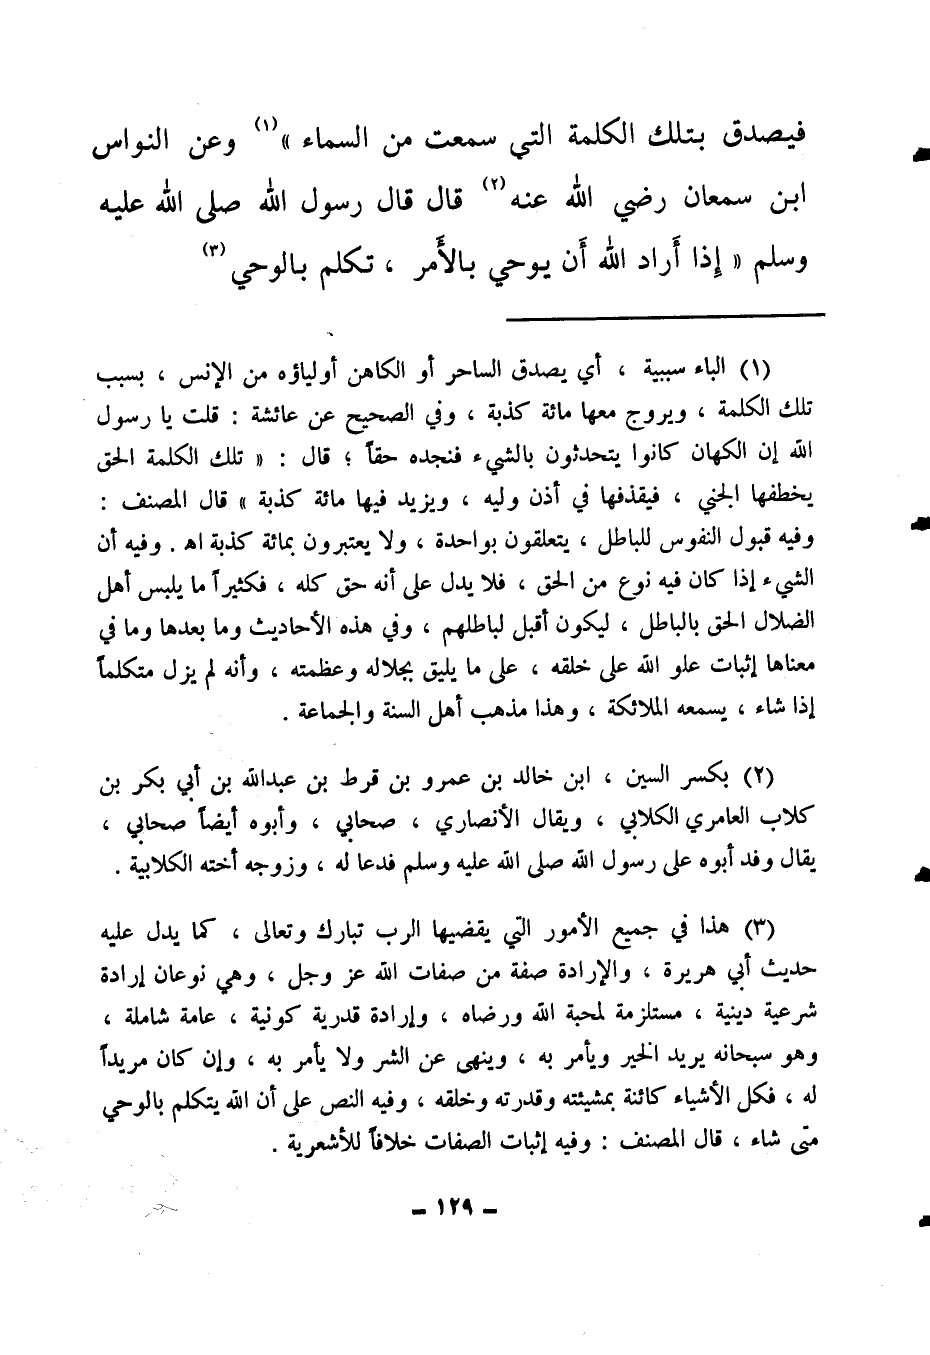 فيصدق بتلك الكلمة التي سمعت من السماء »(١) وعن النواس
ابن سمعان رضي الله عنه(٢) قال قال رسول الله صلى الله عليه
وسلم « إذا أَراد الله أَن يوحي بالأَمر ، تكلم بالوحي(٣)
(١) الباء سببية ، أي يصدق الساحر أو الكاهن أولياؤه من الإنس ، بسبب
تلك الكلمة ، ويروج معها مائة كذبة ، وفي الصحيح عن عائشة : قلت يا رسول
الله إن الكهان كانوا يتحدثون بالشيء فنجده حقاً ؛ قال : « تلك الكلمة الحق
يخطفها الجني ، فيقذفها في أذن وليه ، ويزيد فيها مائة كذبة » قال المصنف :
وفيه قبول النفوس للباطل ، يتعلقون بواحدة ، ولا يعتبرون بمائة كذبة اه . وفيه أن
الشيء إذا كان فيه نوع من الحق ، فلا يدل على أنه حق كله ، فكثيراً ما يلبس أهل
الضلال الحق بالباطل ، ليكون أقبل لباطلهم ، وفي هذه الأحاديث وما بعدها وما في
معناها إثبات علو الله على خلقه ، على ما يليق بجلاله وعظمته ، وأنه لم يزل متكلماً
إذا شاء ، يسمعه الملائكة ، وهذا مذهب أهل السنة والجماعة .
(٢) بكسر السين ، ابن خالد بن عمرو بن قرط بن عبدالله بن أبي بكر بن
كلاب العامري الكلابي ، ويقال الأنصاري ، صحابي ، وأبوه أيضاً صحابي ،
يقال وفد أبوه على رسول الله صلى الله عليه وسلم فدعا له ، وزوجه أخته الكلابية .
(٣) هذا في جميع الأمور التي يقضيها الرب تبارك وتعالى ، كما يدل عليه
حديث أبي هريرة ، والإرادة صفة من صفات الله عز وجل ، وهي نوعان إرادة
شرعية دينية ، مستلزمة لمحبة الله ورضاه ، وإرادة قدرية كونية ، عامة شاملة ،
وهو سبحانه يريد الخير ويأمر به ، وينهى عن الشر ولا يأمر به ، وإن كان مريداً
له ، فكل الأشياء كائنة بمشيئته وقدرته وخلقه ، وفيه النص على أن الله يتكلم بالوحي
متى شاء ، قال المصنف : وفيه إثبات الصفات خلافاً للأشعرية .
– ١٢٩ –